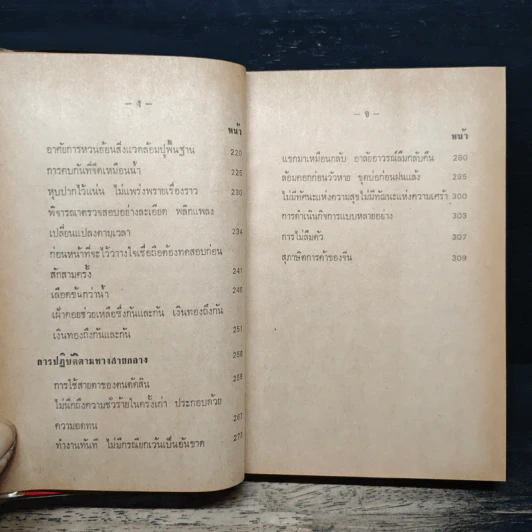 หน้า
อาศัยการหวนย้อนสิ่งแวดล้อมปูพื้นฐาน 220
การคบกันที่จืดเหมือนน้ำ 225
หุบปากไว้แน่น ไม่แพร่งพรายเรื่องราว 230
พิจารณาตรวจสอบอย่างละเอียด พลิกแพลง
เปลี่ยนแปลงตามเวลา 234
ก่อนหน้าที่จะไว้วางใจเชื่อถือต้องทดสอบก่อน
สักสามครั้ง 241
เลือดข้นกว่าน้ำ 246
เฝ้าคอยช่วยเหลือซึ่งกันและกัน เงินทองถึงกัน
เงินทองถึงกันและกัน 251
การปฏิบัติตามทางสายกลาง 258
การใช้สายตาของตนตัดสิน 258
ไม่นึกถึงความชั่วร้ายในครั้งเก่า ประกอบด้วย
ความอดทน 267
ทำงานทันที ไม่มีกรณียกเว้นเป็นอันขาด 273
หน้า
แขกมาเหมือนกลับ อาลัยอาวรณ์ลืมกลับคืน 280
ล้อมคอกก่อนวัวหาย ขุดบ่อก่อนฝนแล้ง 295
ไม่มีทัศนะแห่งความสุขไม่มีทัศนะแห่งความเศร้า 300
การดำเนินกิจการแบบหลายอย่าง 303
การไม่ลืมตัว 307
สุภาษิตการค้าของจีน 309